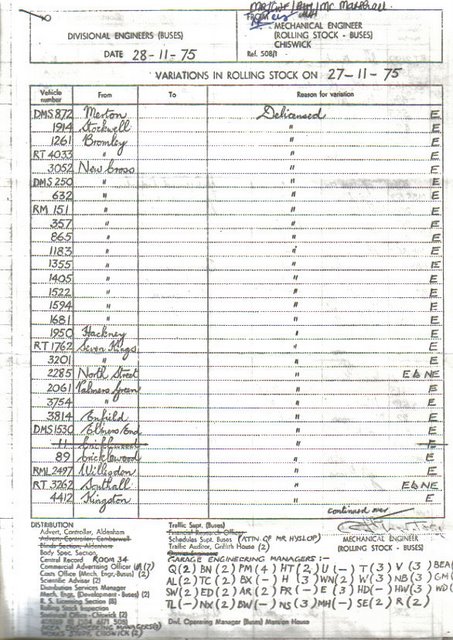 DIVISIONAL ENGINEERS (BUSES)
DATE 28-11-75
MECHANICAL ENGINEER
(ROLLING STOCK - BUSES)
CHISWICK
Ref. 508/1
VARIATIONS IN ROLLING STOCK ON 27-11-75
Vehicle number From To Reason for variation
DMS 872 Merton Delicensed E
1914 Stockwell " E
1261 Bromley " E
RT 4033 " " E
3052 New Cross " E
DMS 250 " " E
632 " " E
RM 151 " " E
357 " " E
865 " " E
1183 " " E
1355 " " E
1405 " " E
1522 " " E
1594 " " E
1681 " " E
1950 Hackney " E
RT 1762 Seven Kings " E
3201 " " E
2285 North Street " E & NE
2061 Palmers Green " E
3754 " " E
3814 Enfield " E
DMS 1530 Elmers End " E
11 Cricklewood " E
89 Cricklewood " E
RML 2497 Willesden " E
RT 3262 Southall " E & NE
4412 Kingston " E
continued over
DISTRIBUTION
Advert. Controller, Aldenham
Body Spec. Section
Central Record ROOM 34
Commercial Advertising Officer (7)
Costs Office (Mech. Engr.-Buses) (2)
Scientific Adviser (2)
Distribution Services Manager
Mech. Engr. (Development - Buses)
R.S. Licensing Section (8)
Rolling Stock Inspection
Office - Chiswick (2)
WORKS STUDY, CHISWICK (2)
Traffic Supt. (Buses)
Financial Research Officer
Schedules Supt. (Buses) (ATTN OF MR HYSLOP)
Traffic Auditor, Griffith House (2)
GARAGE ENGINEERING MANAGERS :-
Q(2) BN(2) PM(4) HT(2) U(-) T(3) V(3) BEA
AL(2) TC(2) BX(-) H(3) WN(2) W(3) NB(3) GM
SW(2) ED(2) AR(2) PR(-) E(3) HD(-) HW(3) WD
TL(-) NX(2) BW(-) NS(3) MH(-) SE(2) R(2)
Divl. Operating Manager (Buses) Mansion House
MECHANICAL ENGINEER
(ROLLING STOCK - BUSES)